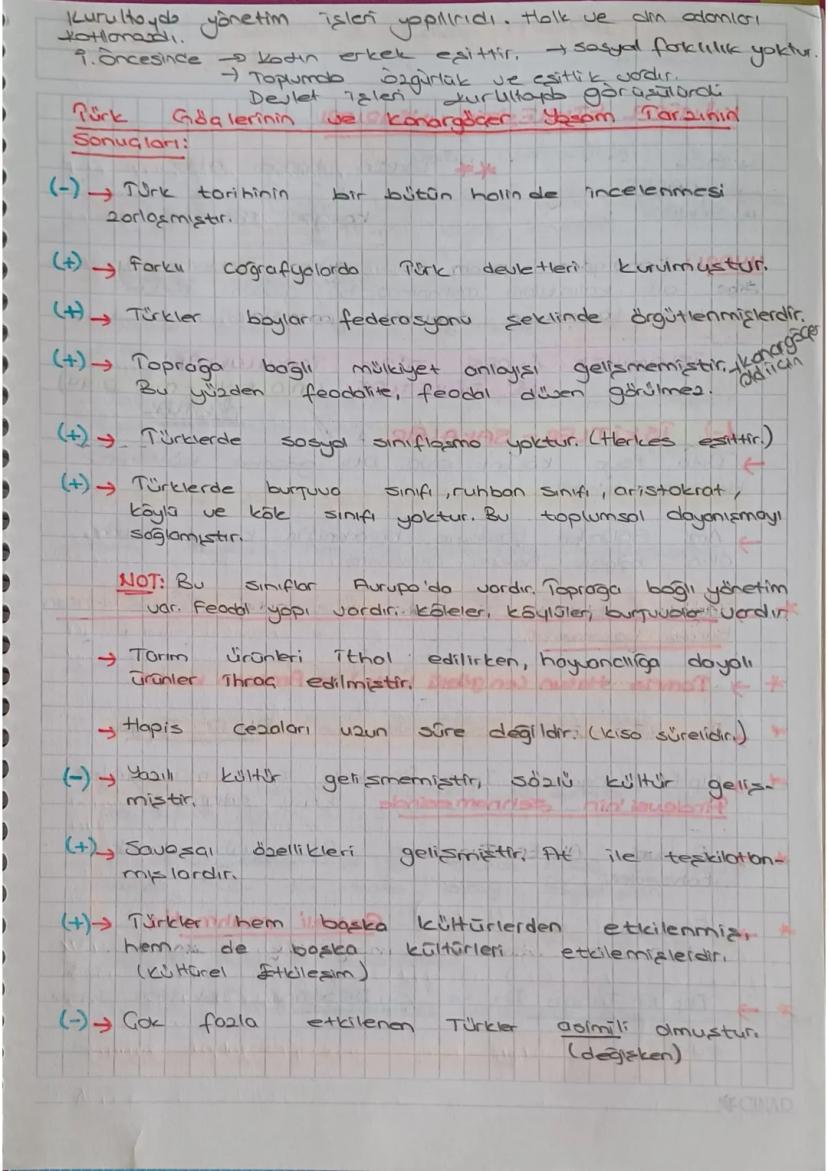 Kurultayda yönetim işleri yapılırdı. Halk ve din adamları
katılamazdı.
İ. Öncesinde → Kadın erkek eşittir. → sosyal farklılık yoktur.
→ Toplumda özgürlük ve eşitlik vardır.
Devlet işleri kurultayda görüşülürdü
Türk Göçlerinin ve Konargöçer Yaşam Tarzının
Sonuçları:
(-) → Türk tarihinin bir bütün halinde incelenmesi
zorlaşmıştır.
(+) → Farklı coğrafyalarda Türk devletleri kurulmuştur.
(+) → Türkler boylar federasyonu şeklinde örgütlenmişlerdir.
(+) → Toprağa bağlı mülkiyet anlayışı gelişmemiştir. → konargöçer
Bu yüzden feodalite, feodal düzen görülmez.
(+) → Türklerde sosyal sınıflaşma yoktur. (Herkes eşittir.)
(+) → Türklerde burjuva sınıfı, ruhban sınıfı, aristokrat,
köylü ve köle sınıfı yoktur. Bu toplumsal dayanışmayı
sağlamıştır.
NOT: Bu sınıflar Avrupa'da vardır. Toprağa bağlı yönetim
var. Feodal yapı vardır. köleler, köylüler, burjuvalar vardır
→ Tarım ürünleri ithal edilirken, hayvancılığa dayalı
ürünler ihraç edilmiştir.
→ Hapis cezaları uzun süre değildir. (kısa sürelidir.)
(-) → Yazılı kültür gelişmemiştir, sözlü kültür geliş-
miştir.
(+) → Savaşçı özellikleri gelişmiştir. At ile teşkilatlan-
mışlardır.
(+) → Türkler hem başka kültürlerden etkilenmiş,
hem de başka kültürleri etkilemişlerdir.
(Kültürel Etkileşim)
(-) → Çok fazla etkilenen Türkler asimili olmuştur.
(değişken)